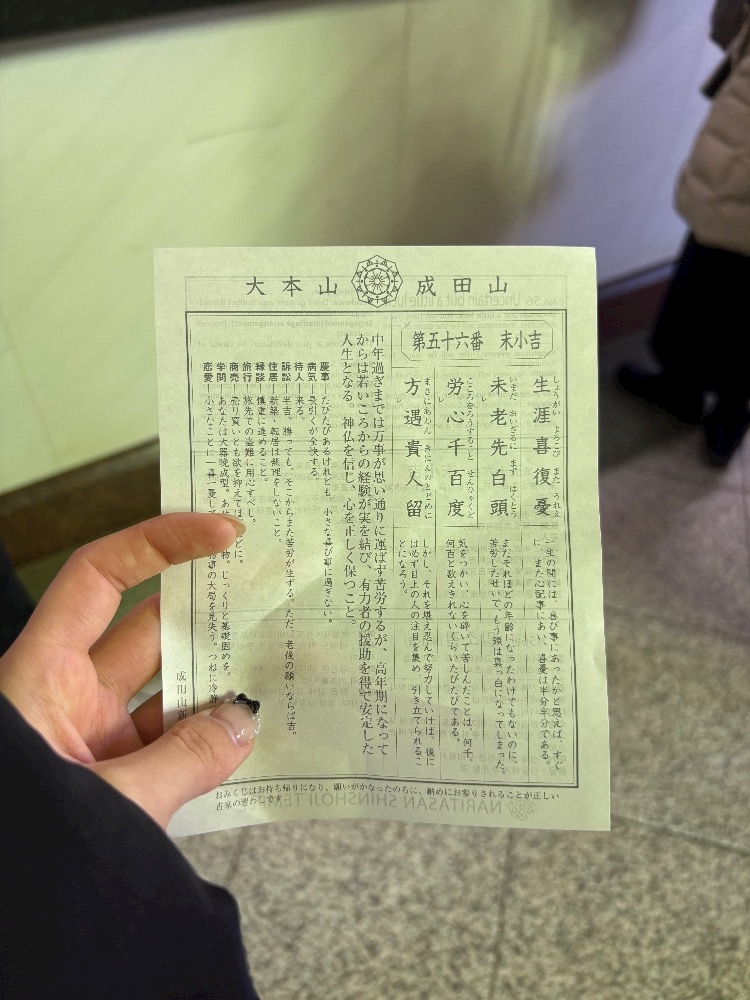 大本山 成田山
第五十六番 末小吉
しょうがい よろこび また うれえ
生涯喜復憂
一生の間には、喜び事にあったかと思えば、すぐ
に、また心配事にあい、喜憂は半分半分である。
いまだ おいざるに まず はくとう
未老先白頭
まだそれほどの年齢になったわけでもないのに、
苦労した甲斐で、もう頭は真っ白になってしまった。
こころをろうすること せんひゃくど
労心千百度
気をつかい、心を砕いて苦しんだことは、何千、
何百と数えきれないくらいたびたびである。
まさにあわん きにんのとどめに
方遇貴人留
しかし、それを堪え忍んで努力していけば、後に
は必ず目上の人の注目を集め、引き立てられるこ
とになろう。
中年過ぎまでは万事が思い通りに運ばず苦労するが、高年期になって
からは若いころからの経験が実を結び、有力者の援助を得て安定した
人生となる。神仏を信じ、心を正しく保つこと。
慶事─たびたびあるけれども、小さな喜び事に過ぎない。
病気─長引くが全快する。
待人─来る。
訴訟─半吉。勝っても、そこからまた苦労が生ずる。ただ、老後の願いならば吉。
住居─新築・転居は無理をしないこと。
縁談─慎重に進めること。
旅行─旅先での盗難に用心すべし。
商売─売り買いとも欲を抑えてほどほどに。
学問─あなたは大器晩成型。あせ 物。じっくりと基礎固めを。
恋愛─小さなことに一喜一憂して 物事の大局を見失う。つねに冷静
成田山新
おみくじはお持ち帰りになり、願いがかなったのちに、納めにお参りされることが正しい
古来の習わしです
NARITASAN SHINSHOJI TEM